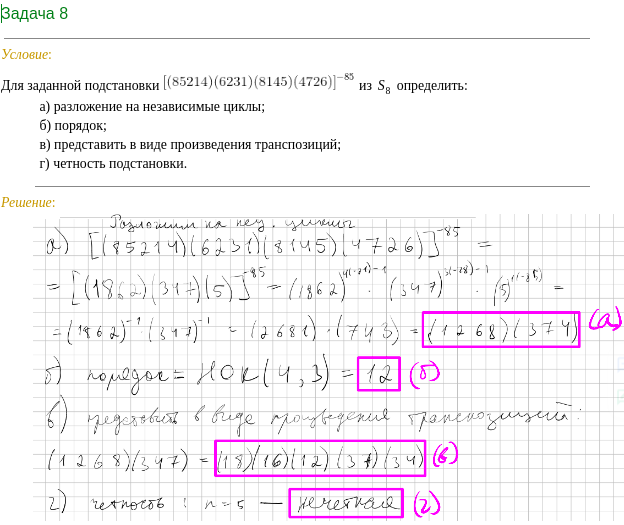 Задача 8
Условие:
Для заданной подстановки [(85214)(6231)(8145)(4726)]⁻⁸⁵ из S₈ определить:
а) разложение на независимые циклы;
б) порядок;
в) представить в виде произведения транспозиций;
г) четность подстановки.
Решение:
Разложим на нез. циклы
а) [(85214)(6231)(8145)(4726)]⁻⁸⁵ =
= [(1862)(347)(5)]⁻⁸⁵ = (1862)⁴⁽⁻²¹⁾⁻¹ · (347)³⁽⁻²⁸⁾⁻¹ · (5)¹⁽⁻⁸⁵⁾ =
= (1862)⁻¹ · (347)⁻¹ = (2681) · (743) = (1268)(374) (а)
б) порядок = НОК(4,3) = 12 (б)
в) представить в виде произведения транспозиций:
(1268)(347) = (18)(16)(12)(37)(34) (в)
г) четность: n=5 — нечетная (г)